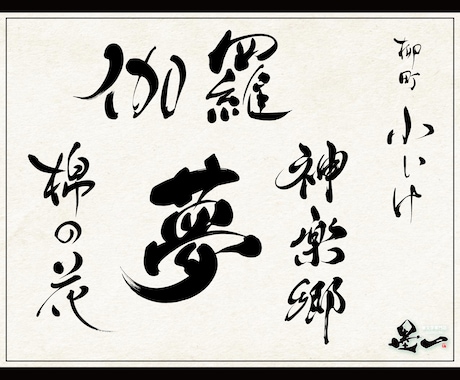 柳町 小いけ
伽羅
神楽郷
夢
棉の花